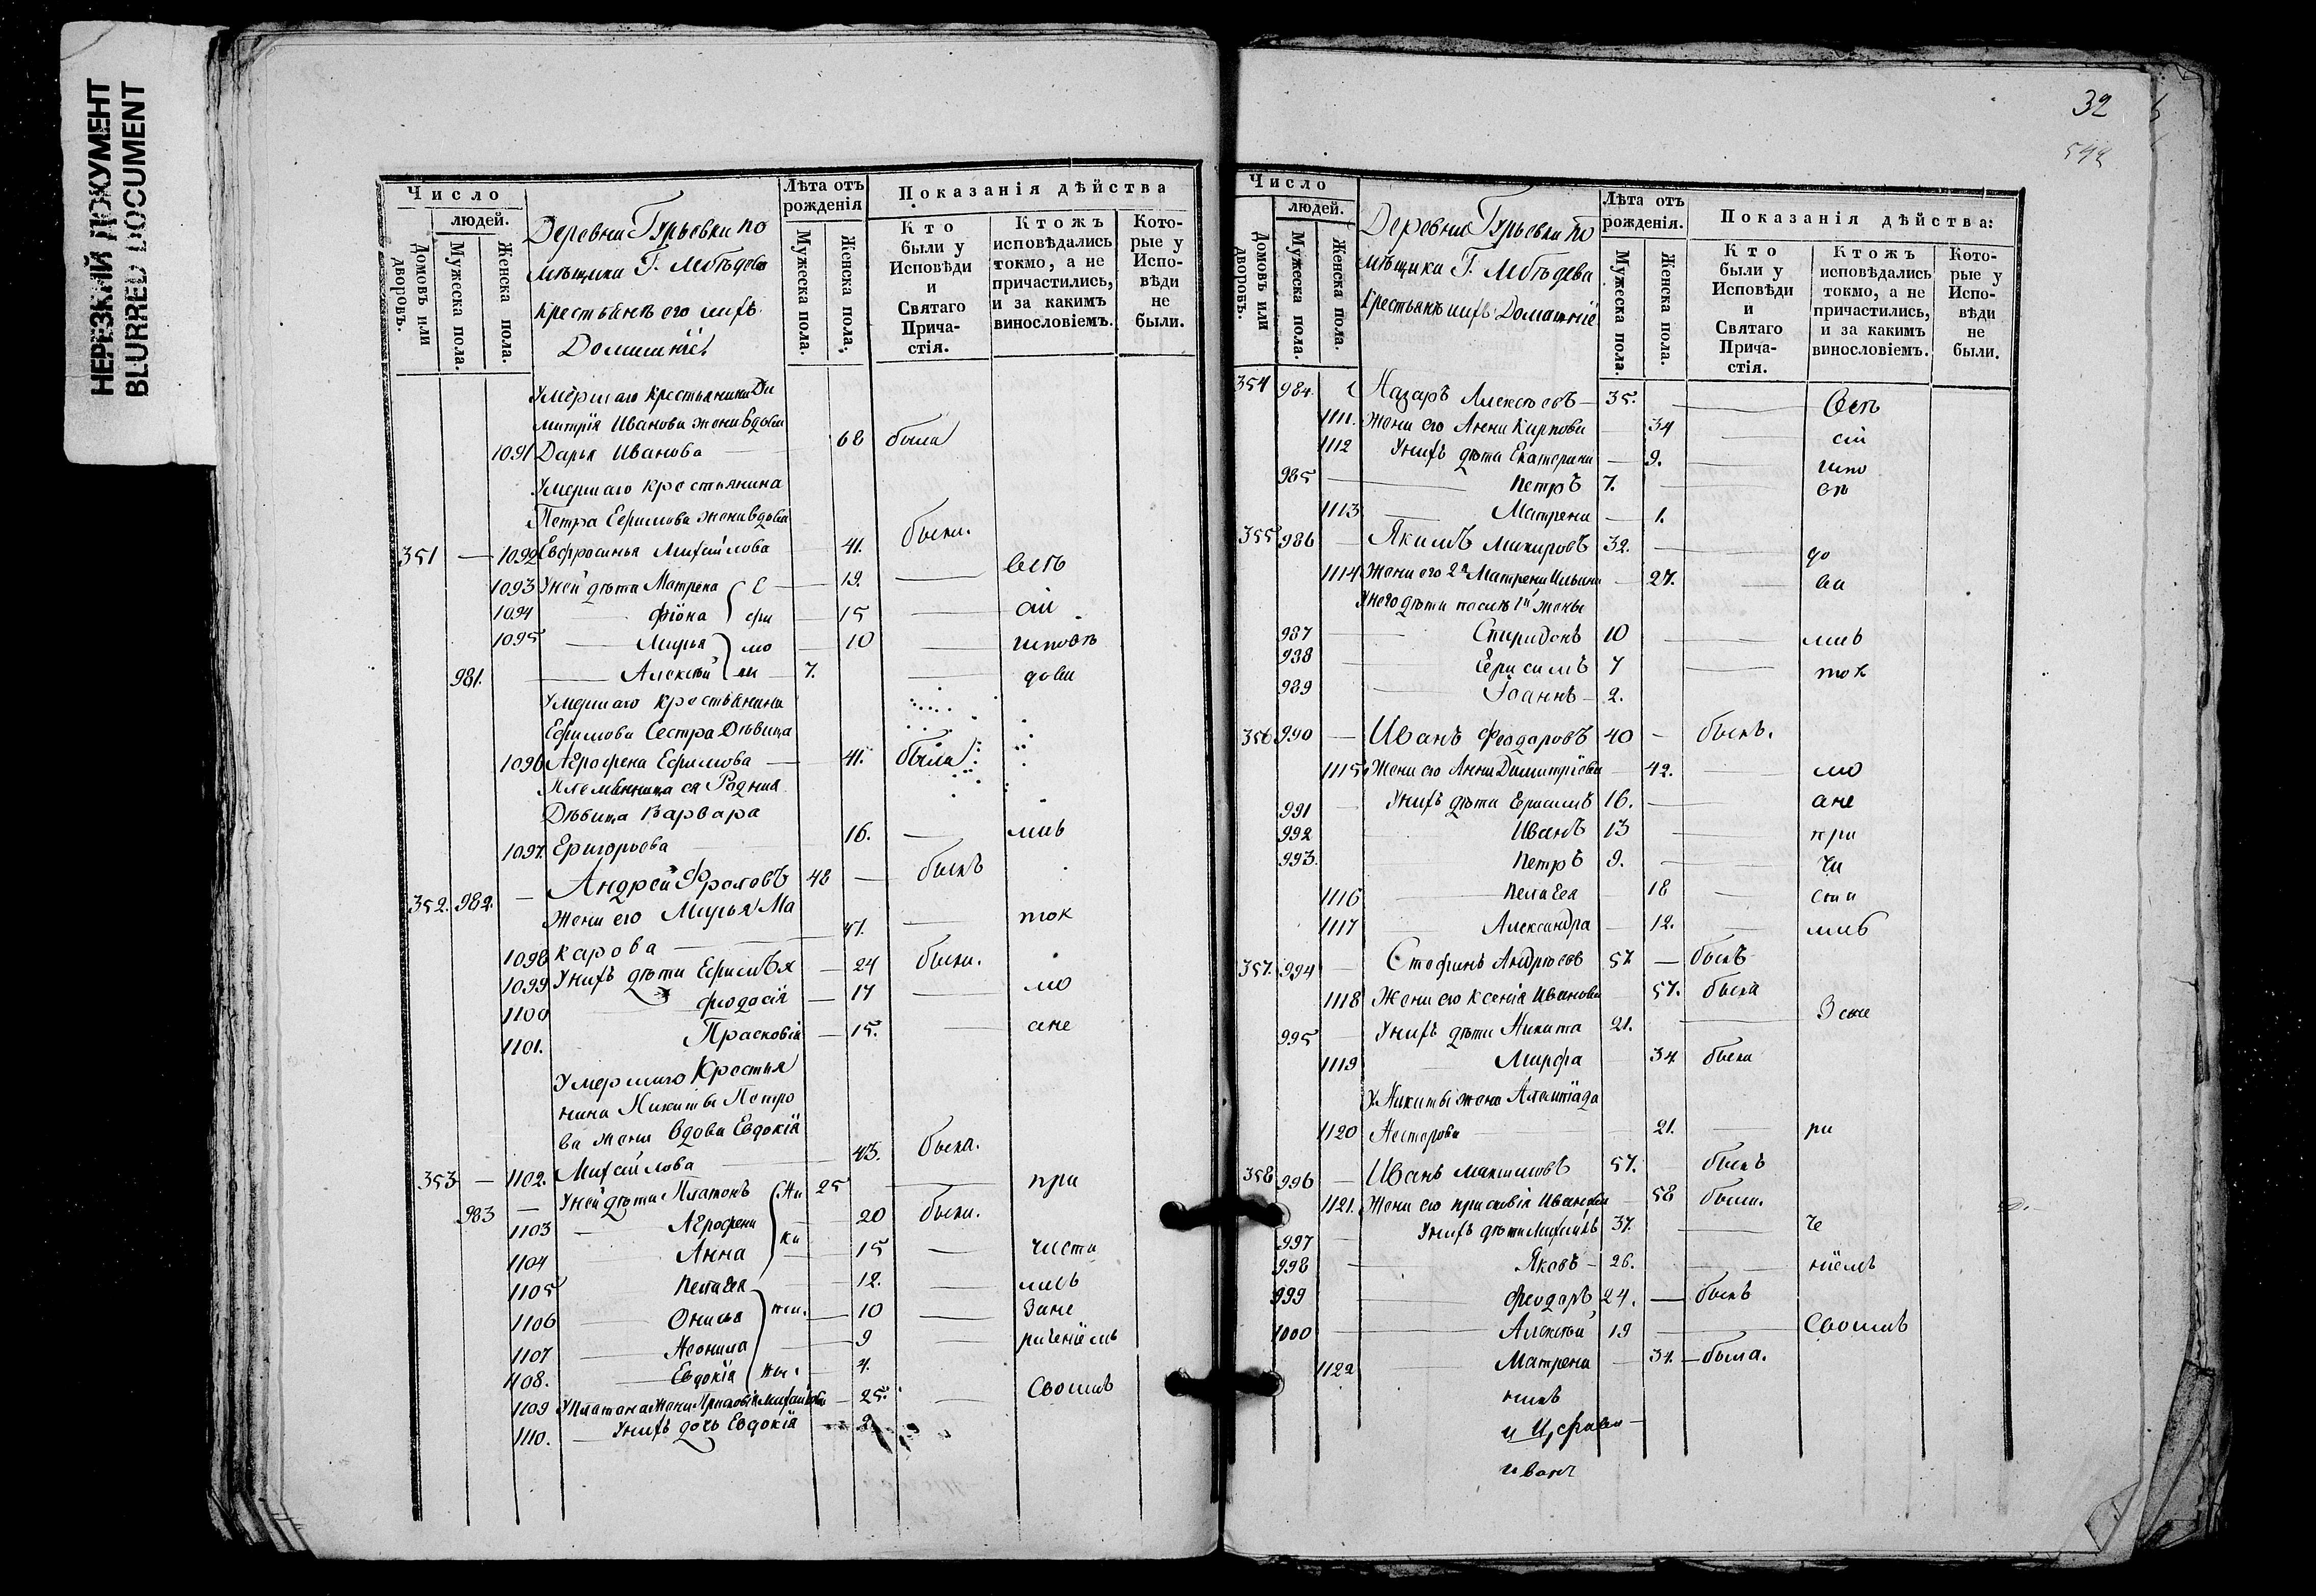 НЕРЕЗКИЙ ДОКУМЕНТ
BLURRED DOCUMENT
Число
людей.
Домовъ или дворовъ.
Мужеска пола.
Женска пола.
Деревни Гурьевки по
мѣщика Г. Лебѣдева
крестьянъ его
Лѣта отъ рожденія
Мужеска пола.
Женска пола.
Показанія дѣйства
Кто были у Исповѣди и Святаго Причастія.
Ктожъ исповѣдались токмо, а не причастились, и за какимъ винословіемъ.
Которые у Исповѣди не были.
Умершаго крестьянина Ди
митрія Иванова жена вдова
1091 Дарья Иванова 68 была
Умершаго крестьянина
Петра Ефимова жена вдова
351 — 1092 Евфросинья Михайлова 41. была.
1093 У ней дѣти Матрена 19.
1094 Фіона 15
1095 Марья 10
981. Алексѣй 7.
Умершаго крестьянина
Ефимова сестра дѣвица
1096 Агрофена Ефимова 41. была
Племянница ея родная
Дѣвица Варвара
1097. Григорьева 16. лись
352. 982. — Андрей Фроловъ 48 — былъ
Жена его Марья Ма
1098 карова 41. ток
1099 У нихъ дѣти 24 была.
1100 Феодосія 17 мо
1101. Прасковія 15. ане
Умершаго крестья
нина Никиты Петро
ва жена вдова Евдокія
353 — 1102. Михайлова 43. была.
983 — У ней дѣти Платонъ 25 при
1103 Агрофена 20 была.
1104 Анна 15 части
1105 Пелагея 12. лись
1106 10 Зане
1107 Неонила 9
1108. Евдокія 4.
1109 У Платона жена Прасковія Михайлова 25. Своимъ
1110. У нихъ дочь Евдокія 2
32
Число
людей.
Домовъ или дворовъ.
Мужеска пола.
Женска пола.
Деревни Гурьевки по
мѣщика Г. Лебѣдева
Крестьянъ
Лѣта отъ рожденія.
Мужеска пола.
Женска пола.
Показанія дѣйства:
Кто были у Исповѣди и Святаго Причастія.
Ктожъ исповѣдались токмо, а не причастились, и за какимъ винословіемъ.
Которые у Исповѣди не были.
354 984. Назаръ Алексѣевъ 35.
1111. Жена его Анна Карпова 34
1112 У нихъ дѣти Екатерина 9.
985 Петръ 7.
1113 Матрена 1.
355 986 Якимъ Макаровъ 32. до
1114 Жена его 2я Матрена Ильина 27. ва
У него дѣти 1й жены
987 Спиридонъ 10 лись
988 7 ток
989 Іоаннъ 2.
356 990 — Иванъ Феодоровъ 40 — былъ.
1115 Жена его Анна Димитріева 42. мо
991 У нихъ дѣти 16. ане
992 Иванъ 13 при
993. Петръ 9. ча
1116 Пелагея 18 сти
1117 Александра 12. лись
357. 994 Андреевъ 57 — былъ
1118 Жена его Ксенія Иванова 57. была
995 У нихъ дѣти Никита 21. Зане
1119 Марфа 34 была
У Никиты жена
1120 Нестерова 21. ри
358 996 Иванъ Максимовъ 57. былъ
1121. Жена его Прасковія Иванова 58 была.
997 У нихъ дѣти 37. че
998 Яковъ 26. ніемъ
999 Феодоръ 24. — былъ
1000 Алексѣй 19 Своимъ
1122 Матрена 34. — была.